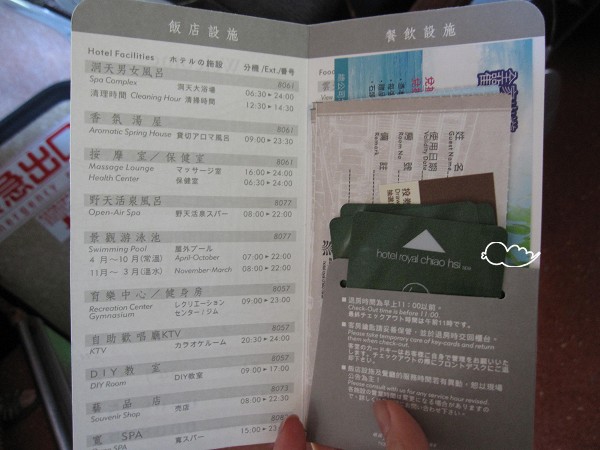 飯店設施
Hotel Facilities ホテルの施設 分機 /Ext./番号
洞天男女風呂 8061
Spa Complex 洞天大浴場 06:30▸24:00
清理時間 Cleaning Hour 清掃時間 12:30▸14:30
香氛湯屋 8061
Aromatic Spring House 貸切アロマ風呂 09:00▸23:30
按摩室／保健室 8061
Massage Lounge マッサージ室 16:00▸24:00
Health Center 保健室 06:30▸24:00
野天活泉風呂 8077
Open-Air Spa 野天活泉スパー 08:00▸22:00
景觀游泳池 8077
Swimming Pool 屋外プール
4 月～10月(常溫) April-October 07:00▸22:00
11月～ 3月(溫水) November-March 08:00▸22:00
育樂中心／健身房 8057
Recreation Center レクリエーション 09:00▸23:00
Gymnasium センター / ジム
自助歡唱廳KTV 8057
KTV カラオケルーム 20:30▸24:00
DIY 教室 8057
DIY Room DIY教室 09:00▸17:00
藝品店 8073
Souvenir Shop 売店 08:00▸22:30
寬 SPA
寬スパー 15:00▸23:00
餐飲設施
姓名
Guest Name
使用日期
Validity Date
房號
Room No
備註
Remark
hotel royal chiao hsi spa
■ 退房時間為早上11：00以前。
Check-Out time is before 11:00.
最終チェックアウト時間は午前11時です。
■ 客房鑰匙請妥善保管，並於退房時交回櫃台。
Please take temporary care of key-cards and return
them when check-out.
客室のカードキーはお客様ご自身で管理をお願いいた
します。チェックアウトの際にフロントデスクにご返
却下さい。
■ 飯店設施及餐廳的服務時間若有異動，恕以現場
公告為主！
Please consult with us for any service hour revised.